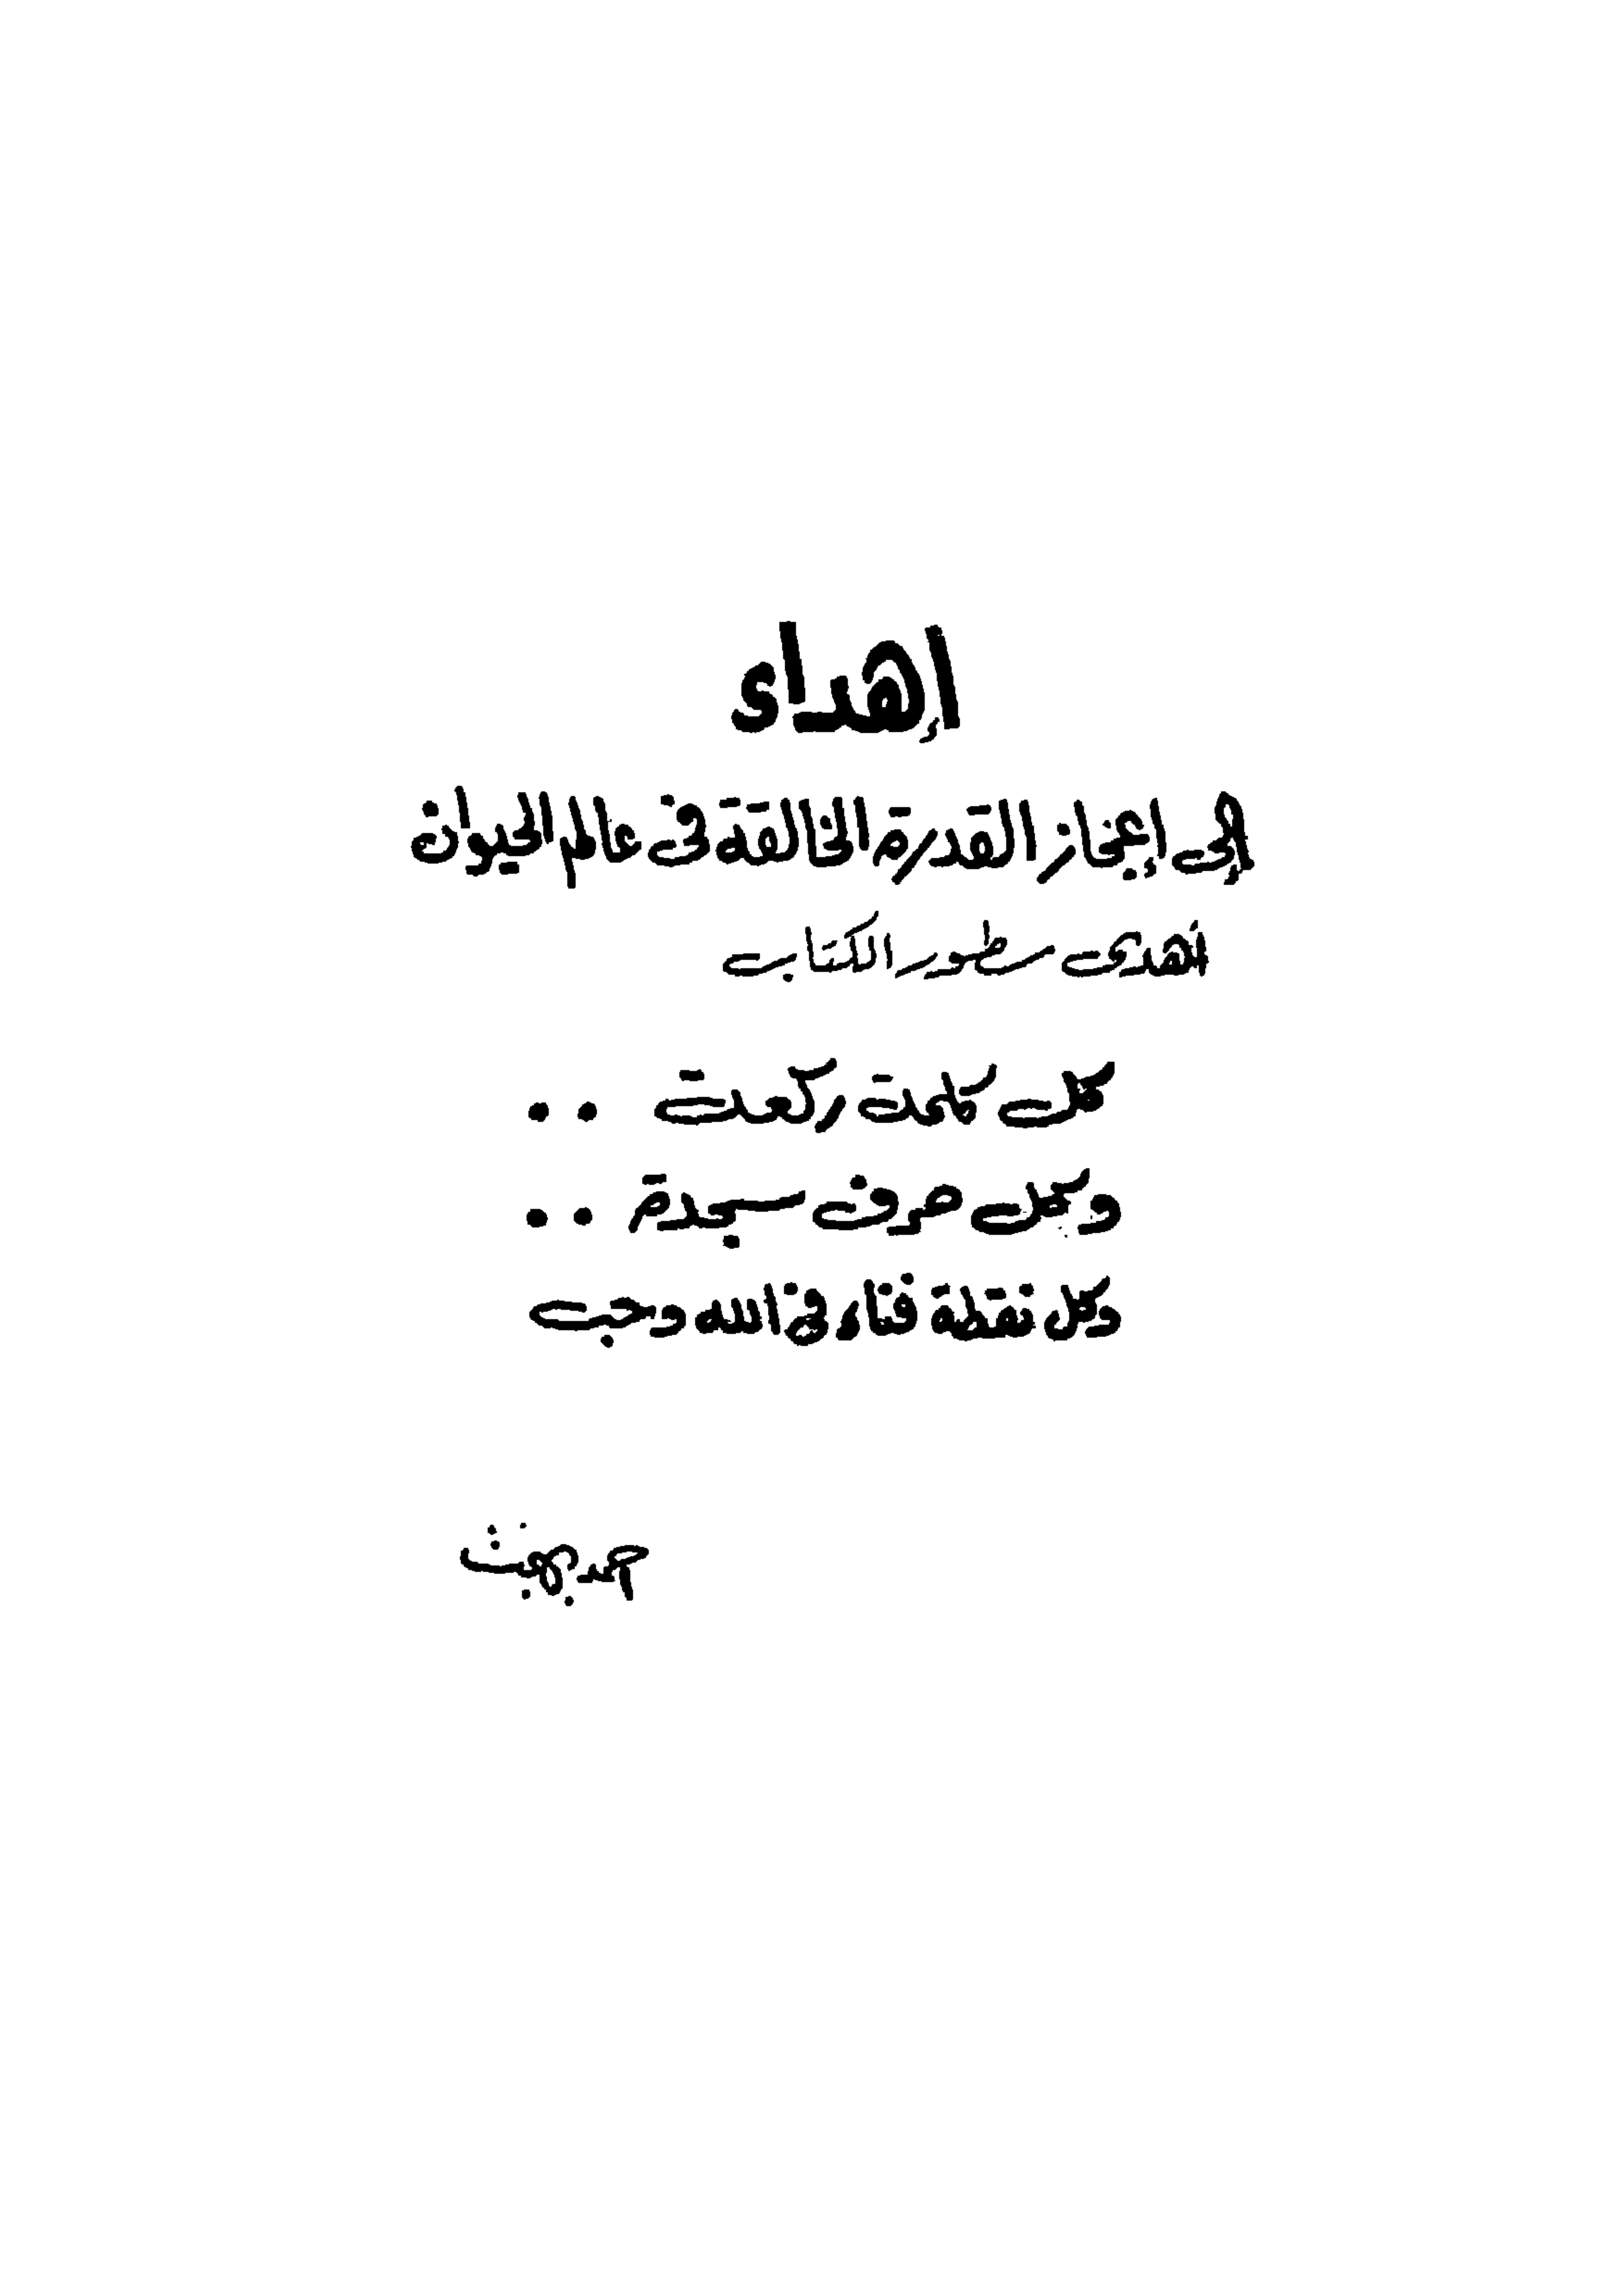 إهداء
إلى إعجاز القدرة الخالقة فى عالم الحيوان
أهدى سطور الكتاب
كل كلمة ركعة ..
وكل حرف سجدة ..
وكل نقطة فناء فى الله وحب
أحمد بهجت